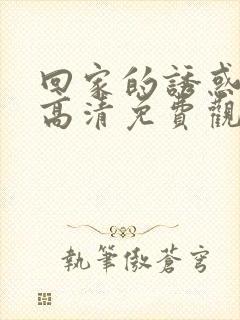 回家的誘惑
高清免費觀
執筆傲蒼穹